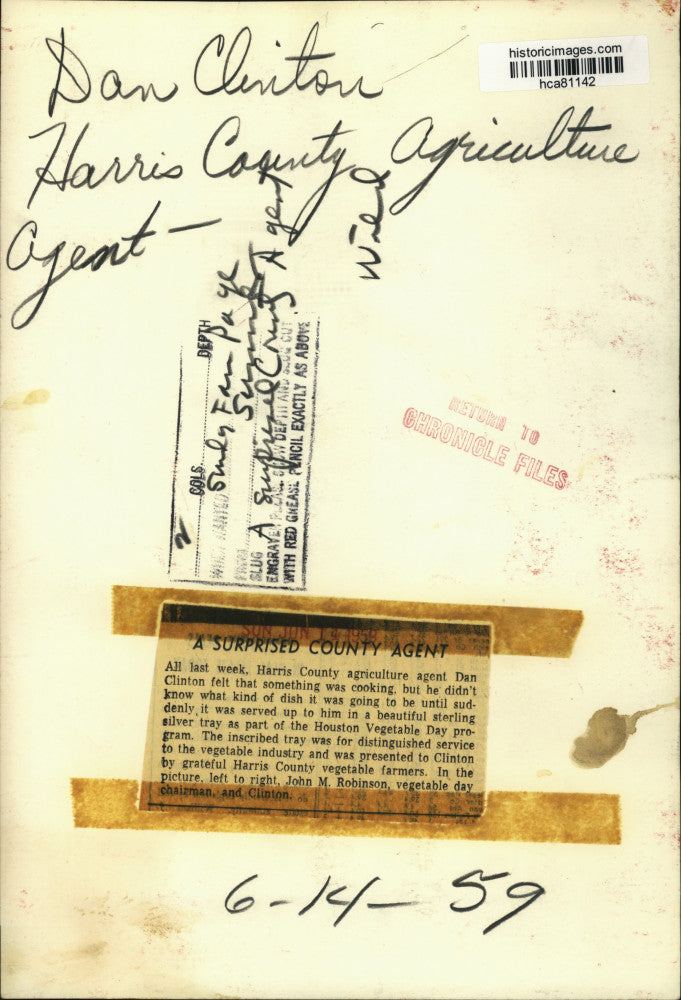 historicimages.com
hca81142
Dan Clinton
Harris County Agriculture
Agent —
DEPTH
COLS
2
Farm Page
A Surprised County Agent
SLUG
WITH RED GREASE PENCIL EXACTLY AS ABOVE
RETURN TO
CHRONICLE FILES
SUN JUN 14 1959
A SURPRISED COUNTY AGENT
All last week, Harris County agriculture agent Dan
Clinton felt that something was cooking, but he didn't
know what kind of dish it was going to be until sud-
denly it was served up to him in a beautiful sterling
silver tray as part of the Houston Vegetable Day pro-
gram. The inscribed tray was for distinguished service
to the vegetable industry and was presented to Clinton
by grateful Harris County vegetable farmers. In the
picture, left to right, John M. Robinson, vegetable day
chairman, and Clinton.
6-14-59